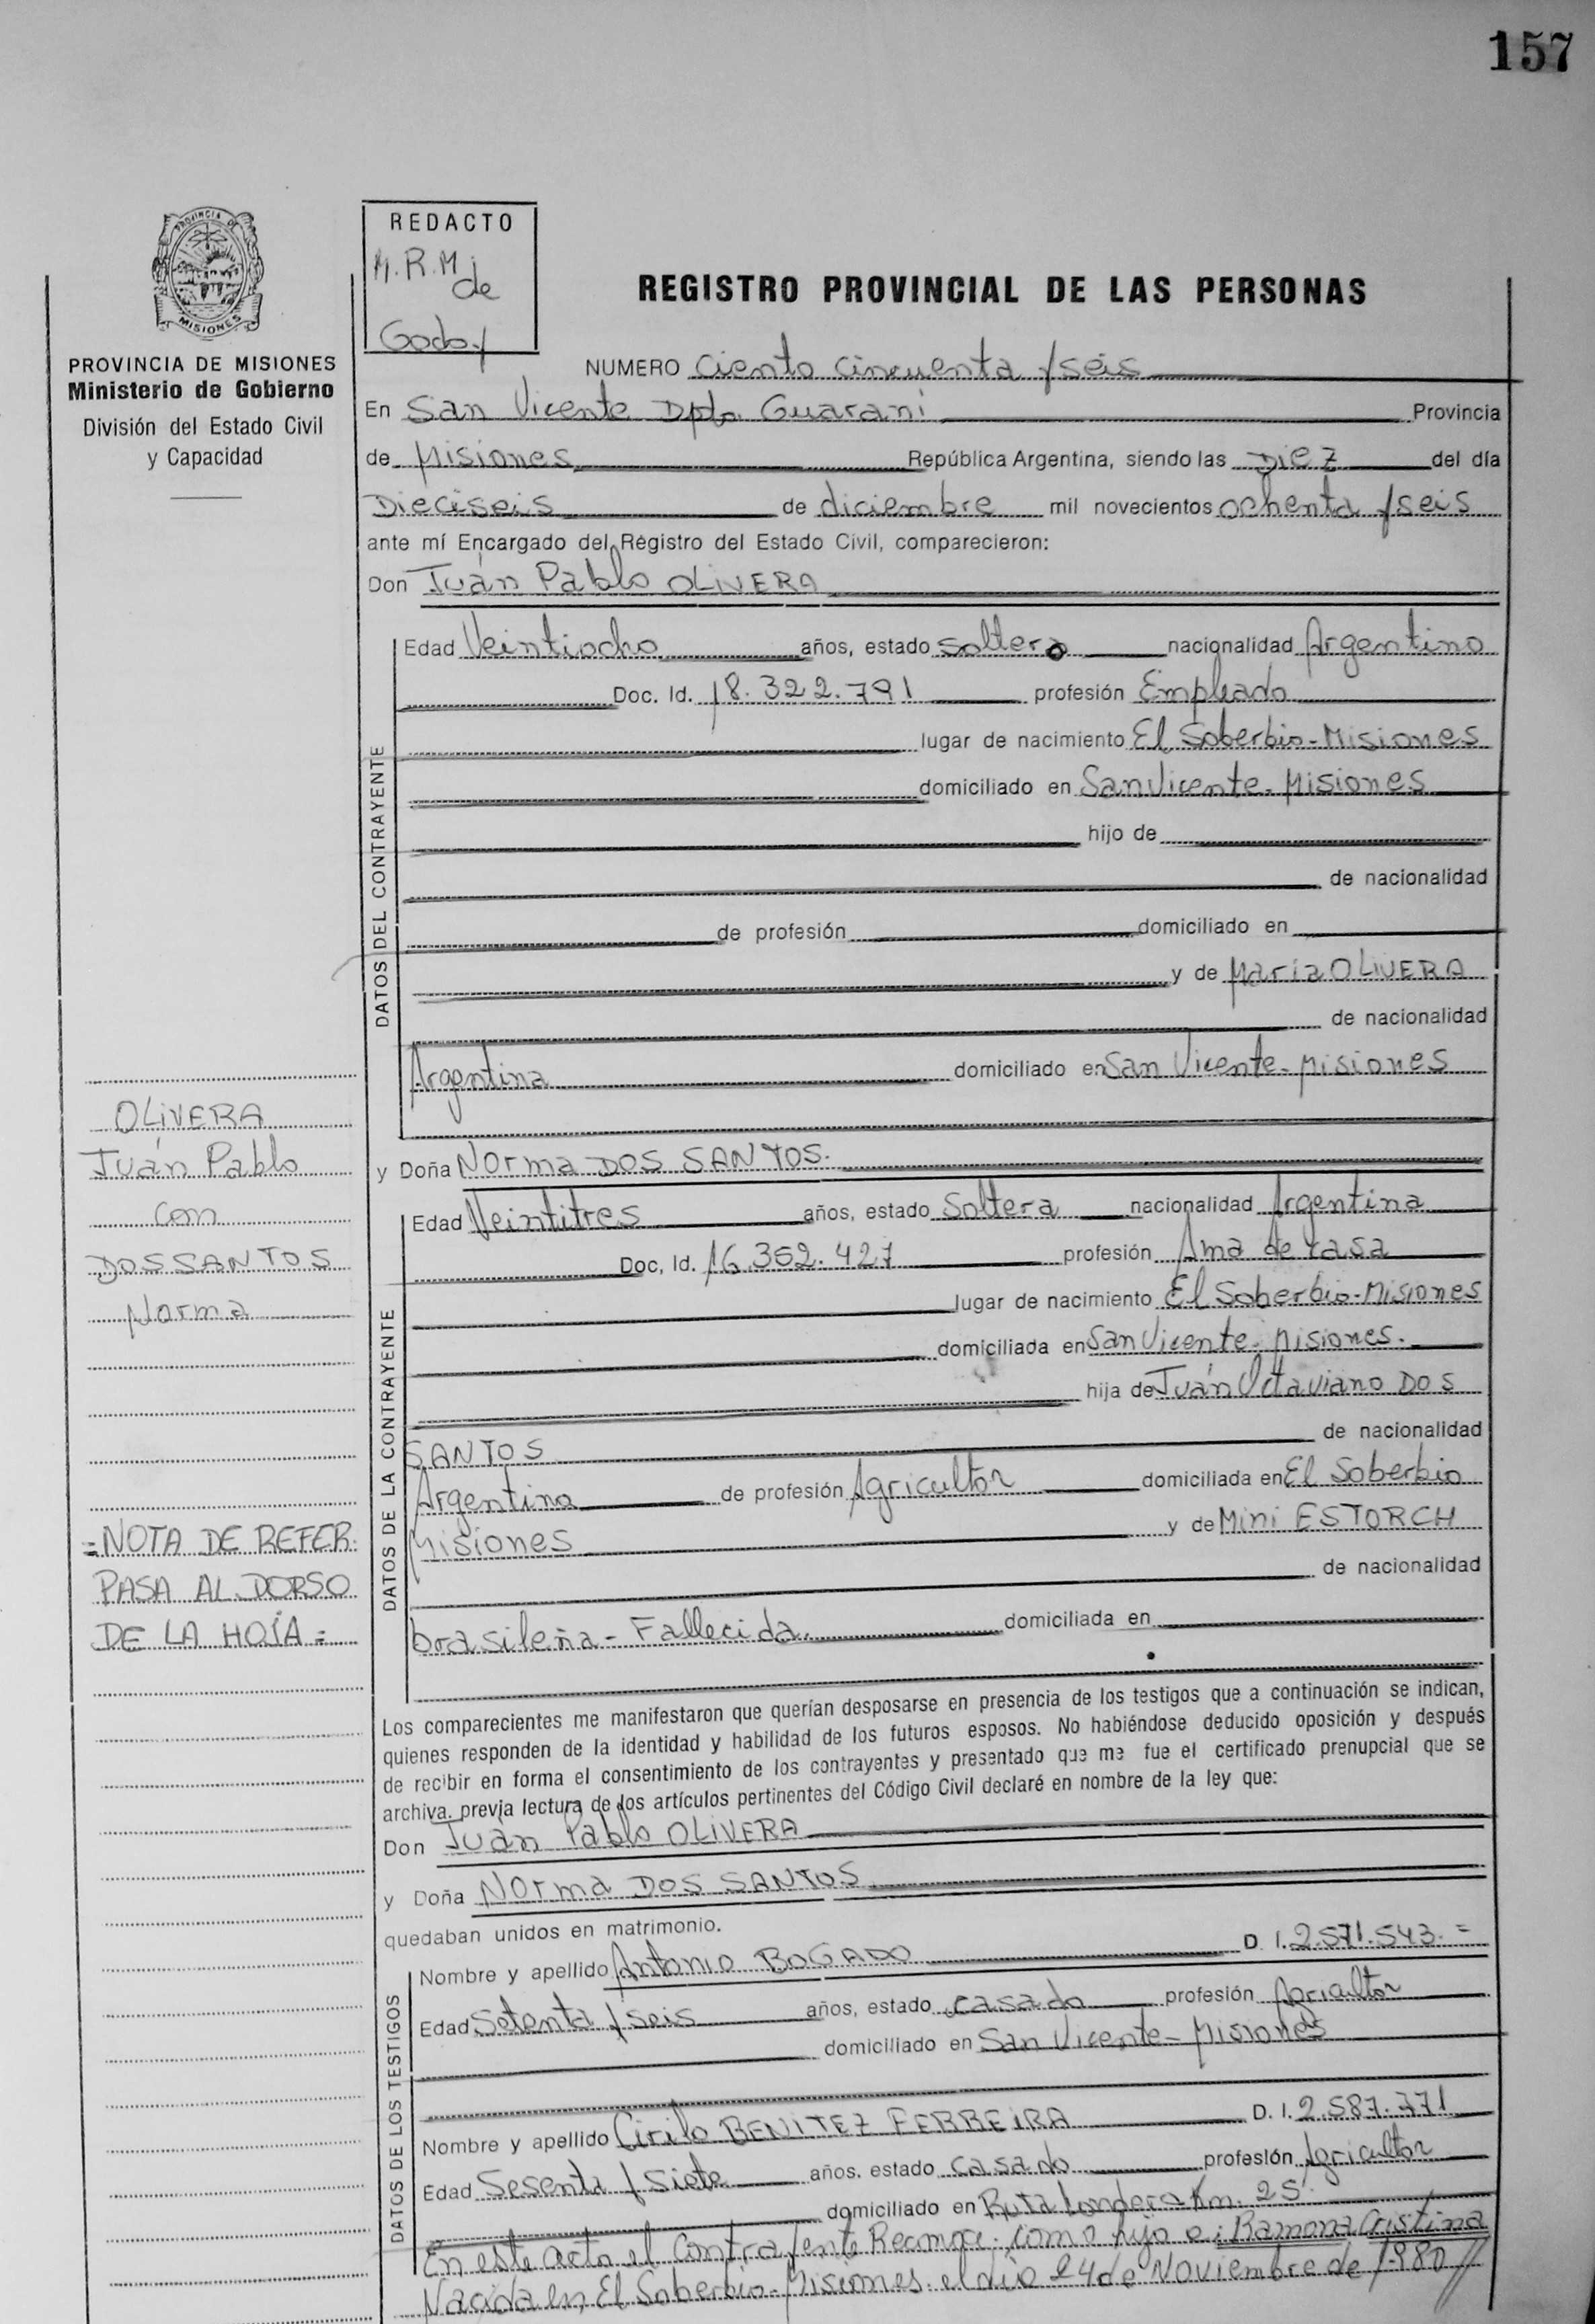 157
PROVINCIA DE
MISIONES
PROVINCIA DE MISIONES
Ministerio de Gobierno
División del Estado Civil
y Capacidad
REDACTO
M.R.M
de
Godoy
REGISTRO PROVINCIAL DE LAS PERSONAS
NUMERO Ciento Cincuenta y seis
En San Vicente Dpto. Guaraní Provincia
de Misiones República Argentina, siendo las Diez del día
Dieciseis de diciembre mil novecientos ochenta y seis
ante mí Encargado del Registro del Estado Civil, comparecieron:
Don Juán Pablo OLIVERA
DATOS DEL CONTRAYENTE
Edad Veintiocho años, estado soltero nacionalidad Argentino
Doc. Id. 18.322.791 profesión Empleado
lugar de nacimiento El Soberbio-Misiones
domiciliado en San Vicente-Misiones
hijo de
de nacionalidad
de profesión domiciliado en
y de María OLIVERA
de nacionalidad
Argentina domiciliado en San Vicente-Misiones
y Doña Norma DOS SANTOS.
DATOS DE LA CONTRAYENTE
Edad Veintitres años, estado Soltera nacionalidad Argentina
Doc, Id. 16.352.427 profesión Ama de casa
lugar de nacimiento El Soberbio-Misiones
domiciliada en San Vicente. Misiones.
hija de Juán Octaviano DOS
SANTOS de nacionalidad
Argentina de profesión Agricultor domiciliada en El Soberbio
Misiones y de Mini ESTORCH
de nacionalidad
brasileña - Fallecida. domiciliada en
OLIVERA
Juán Pablo
con
DOS SANTOS
Norma
=NOTA DE REFER.
PASA AL DORSO
DE LA HOJA=
Los comparecientes me manifestaron que querían desposarse en presencia de los testigos que a continuación se indican,
quienes responden de la identidad y habilidad de los futuros esposos. No habiéndose deducido oposición y después
de recibir en forma el consentimiento de los contrayentes y presentado que me fue el certificado prenupcial que se
archiva. previa lectura de los artículos pertinentes del Código Civil declaré en nombre de la ley que:
Don Juán Pablo OLIVERA
y Doña Norma DOS SANTOS
quedaban unidos en matrimonio.
DATOS DE LOS TESTIGOS
Nombre y apellido Antonio BOGADO D. I. 2.571.543.=
Edad Setenta y seis años, estado casado profesión Agricultor
domiciliado en San Vicente-Misiones
Nombre y apellido Cirilo BENITEZ FERREIRA D. I. 2.587.771
Edad Sesenta y Siete años. estado casado profesión Agricultor
domiciliado en Ruta Km. 25.
En este acto el Contrayente Reconoce como hijo a: Ramona Cristina
Nacida en El Soberbio-Misiones. el día 24 de Noviembre de 1.980